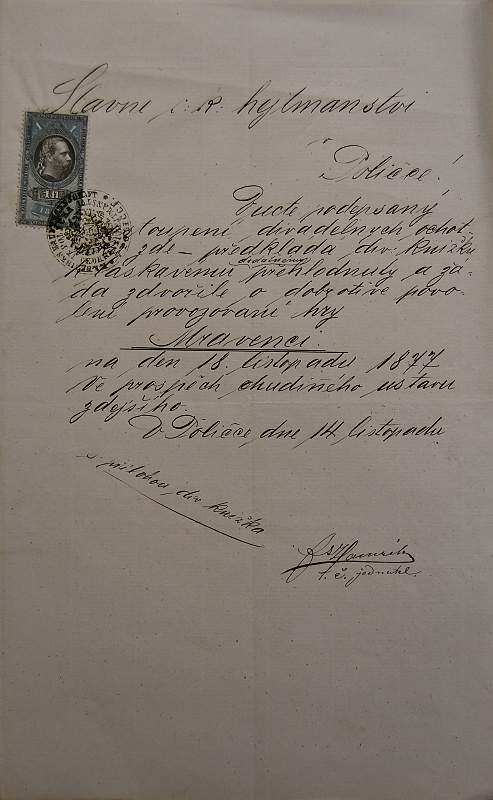 Slavné c. k. hejtmanství
v Poličce!
Ucte podepsaný
loupení divadelných ochot-
zde – předkládá div. knížky
laskavému přehlednutí a žá-
dá zdvořile o dobrotivé povo-
lení provozování hry
Mravenci.
na den 18. listopadu 1877
ve prospěch chudiného ústavu
zdejšího.
V Poličce dne 14 listopadu
přílohou div knížka
t. č. jednatel.